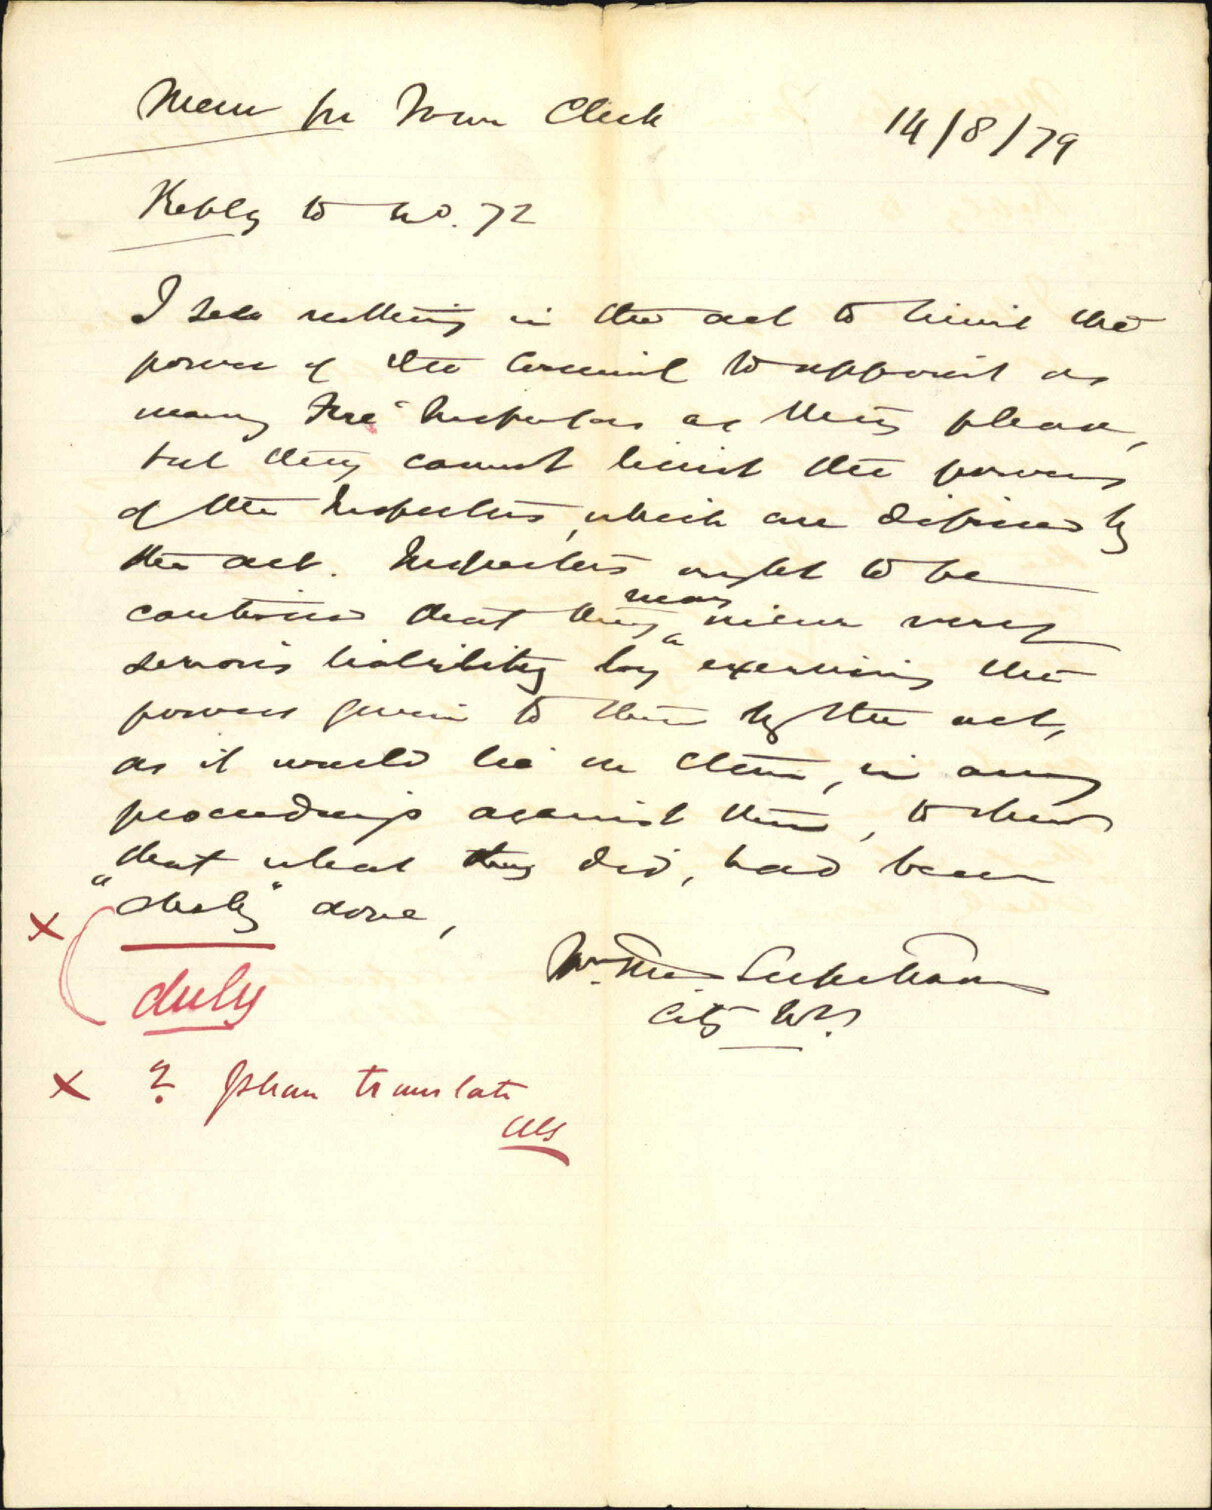 Memo for Town Clerk
14/8/79
Reply to no. 72
I see nothing in the act to limit the
power of the Council to appoint as
many Fire Inspectors as they please,
but they cannot limit the powers
of the Inspectors, which are defined by
the act. Inspectors ought to be
cautious that they may incur very
serious liability by exercising the
powers given to them by the act,
as it would lie on them, in any
proceedings against them, to show
that what they did, had been
"duly" done,
Wm.
City
x duly
x ? translate